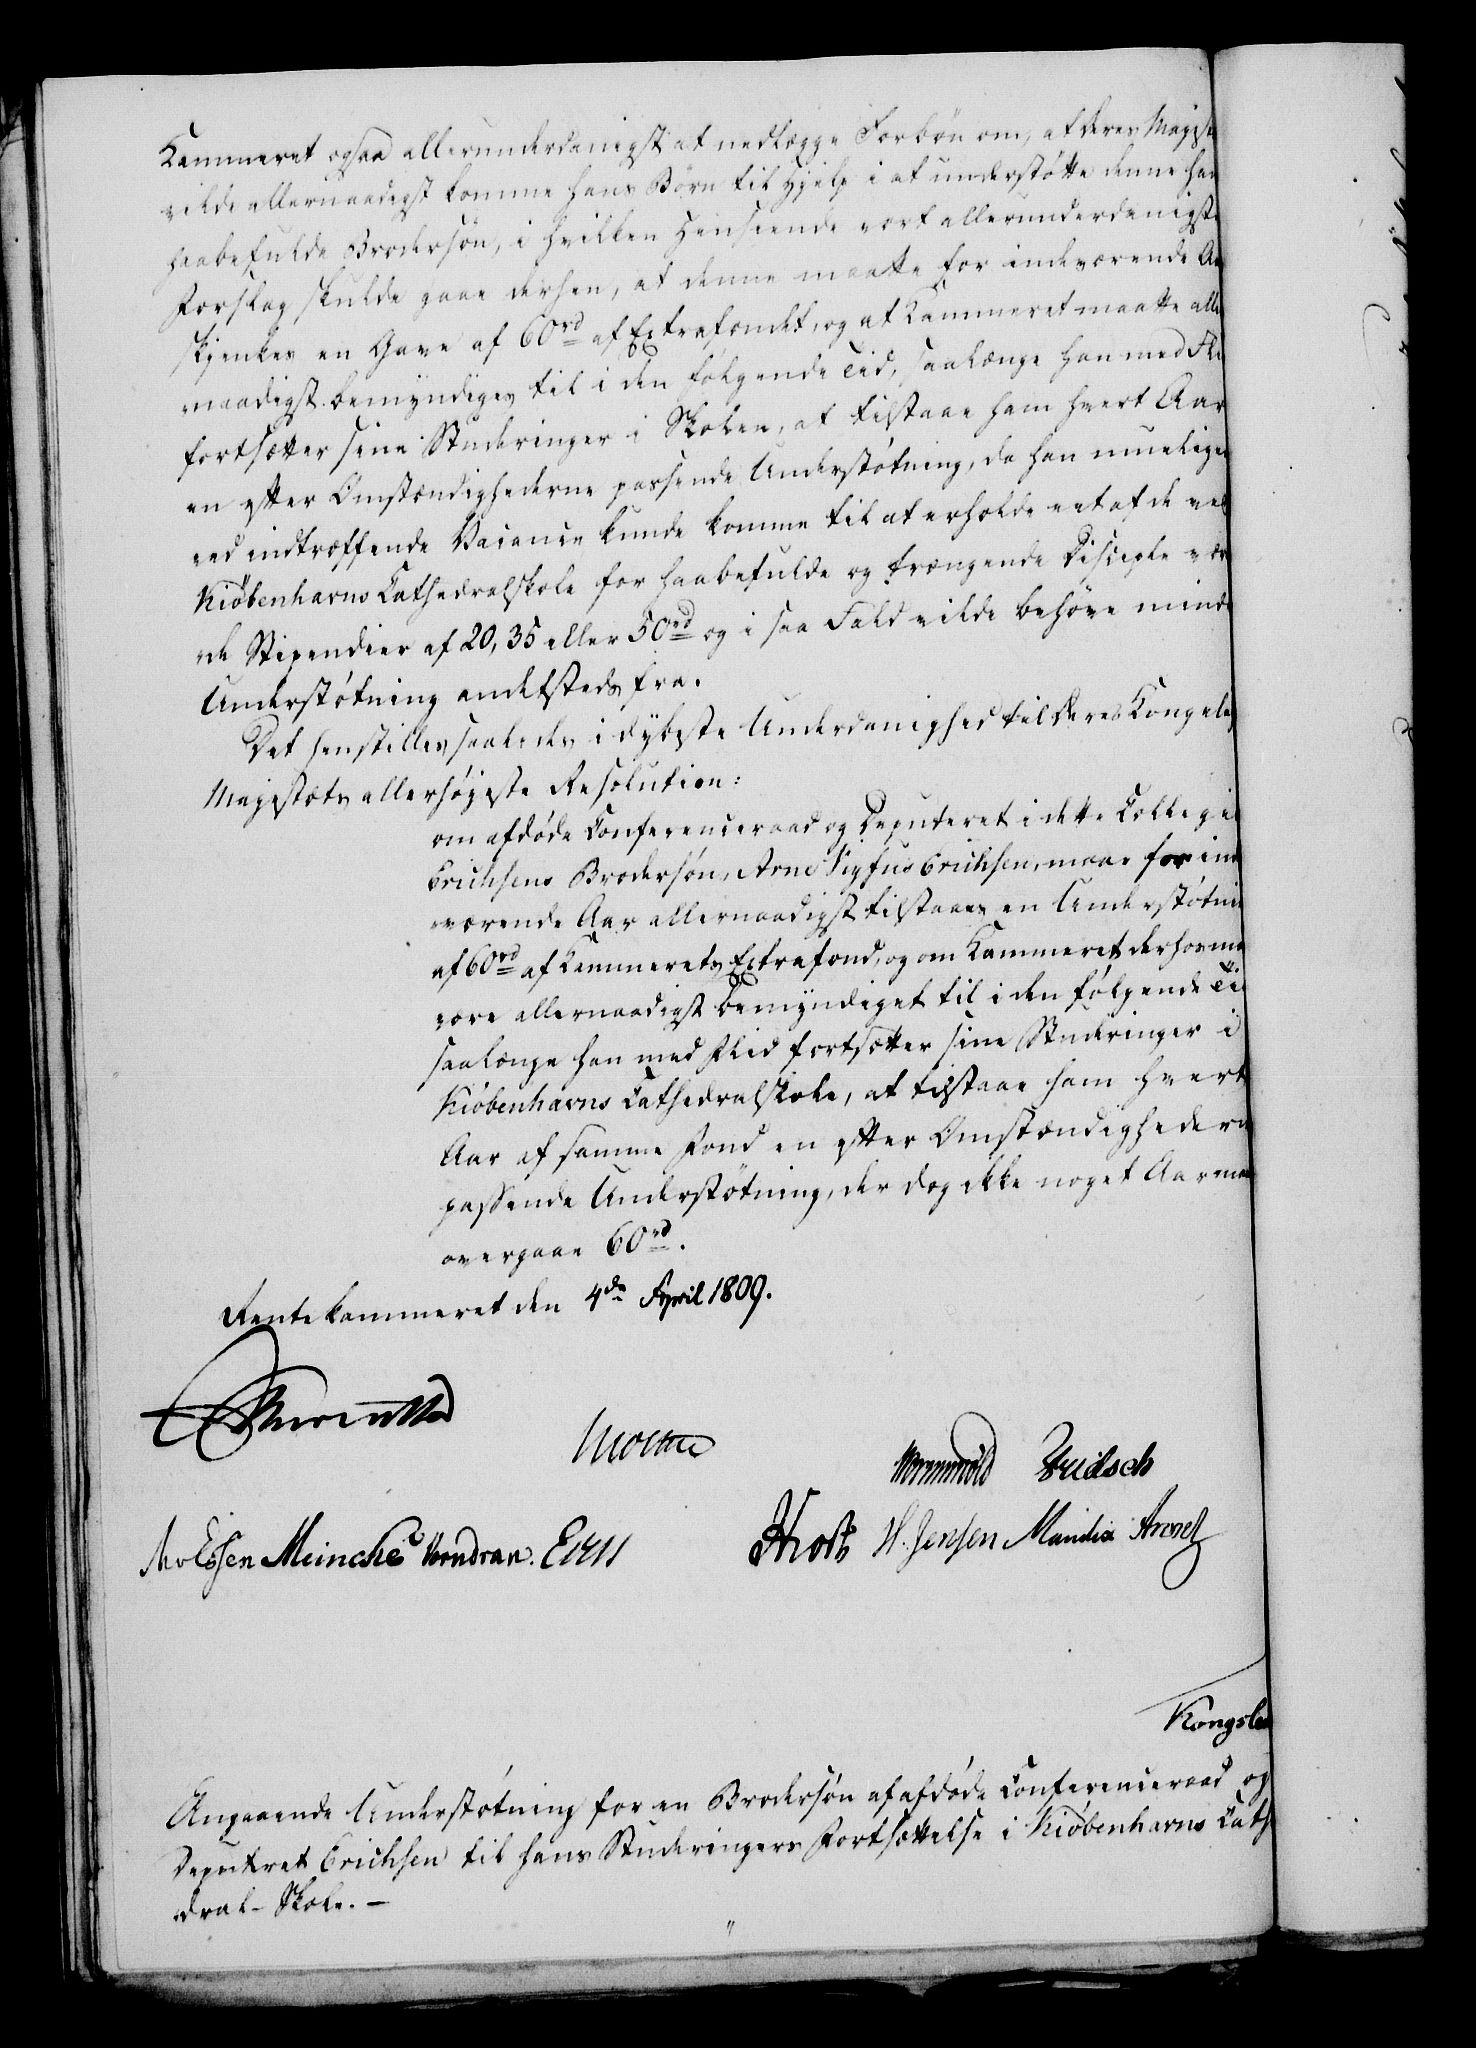 Kammeret ogsaa allerunderdanigst at nedlægge Forbøn om, at deres Majest
vilde allernaadigst komme hans Børn til Hjelp i at understøtte denne han
haabefulde Brodersøn, i hvilken Henseende vort allerunderdanigste
Forslag skulde gaae derhen, at denne maatte for indeværende Aa
skjenkes en Gave af 60rd af Extrafondet, og at Kammeret maatte alle
naadigst bemyndiges til i den følgende Tid, saalænge han med Fli
fortsætter sine Studeringer i Skolen, at tilstaae ham hvert Aar
en efter Omstændighederne passende Understøtning, da han muelige
ved indtræffende Vacance kunde komme til at erholde eet af de ved
Kiøbenhavns Cathedralskole for haabefulde og trængende Disciple vær
de Stipendier af 20, 35 eller 50rd og i saa Fald vilde behøve mindr
Understøtning andetsteds fra.
Det henstilles saaledes i dybeste Underdanighed til Deres Kongelig
Majestæts allerhøjeste Resolution:
om afdøde Conferenceraad og Deputeret i dette Collegie
Erichsens Brodersøn, Arne Sigfus Erichsen, maae for inde
værende Aar allernaadigst tilstaaes en Understøtnin
af 60rd af Kammerets Extrafond, og om Kammeret derhos ma
være allernaadigst bemyndiget til i den følgende Tid
saalænge han med Flid fortsætter sine Studeringer i
Kiøbenhavns Cathedralskole, at tilstaae ham hvert
Aar af samme Fond en efter Omstændighedern
passende Understøtning, der dog ikke noget Aar maa
overgaae 60rd.
Rentekammeret den 4de April 1809.
Moltke
Wormskiold Knudsch
M v Essen Meincke Vondran.
Hrost H. Jensen Mandix
Kongele
Angaaende Understøtning for en Brodersøn af afdøde Conferenceraad og
Deputeret Erichsen til hans Studeringers Fortsættelse i Kiøbenhavns Cathe
dral-Skole. –